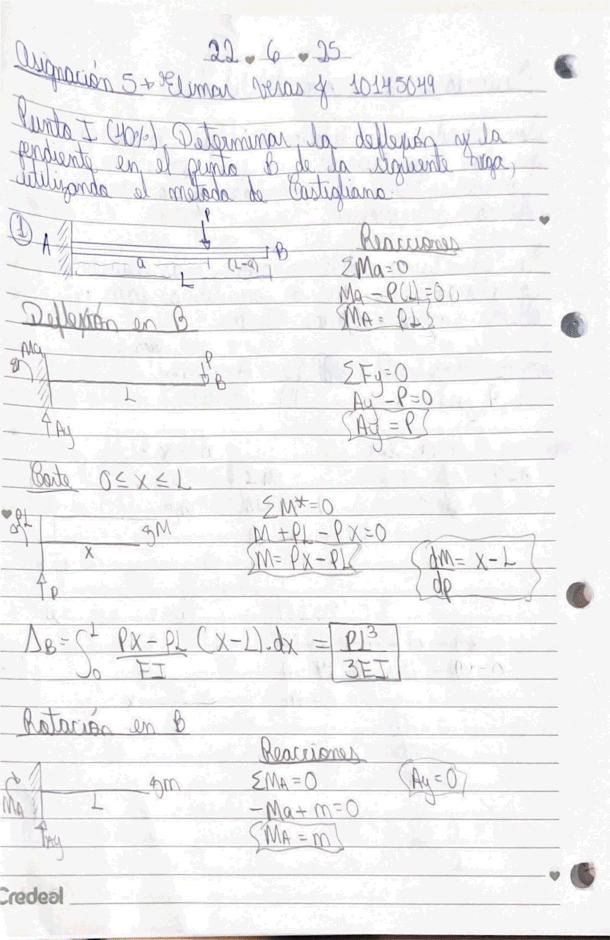 22 . 6 . 25
Asignación 5 + Elimar Veras 10145049
Punto I (40%), Determinar la deflexión y la
pendiente en el punto B de la siguiente viga,
utilizando el metodo de Castigliano.
① A P B
a (L-a)
L
Reacciones
ΣMa=0
Ma - P(L)=0
MA = PL
Deflexión en B
Ma P B
L
Ay
ΣFy=0
Ay - P=0
Ay = P
Corte 0 ≤ x ≤ L
PL M
x
P
ΣM*=0
M + PL - Px=0
M = Px - PL
dM/dp = x - L
ΔB = ∫₀ᴸ (Px - PL)/EI (x-L).dx = PL³/3EI
Rotación en B
MA L m
Ay
Reacciones
ΣMA=0
-Ma + m=0
MA = m
Ay=0
Credeal